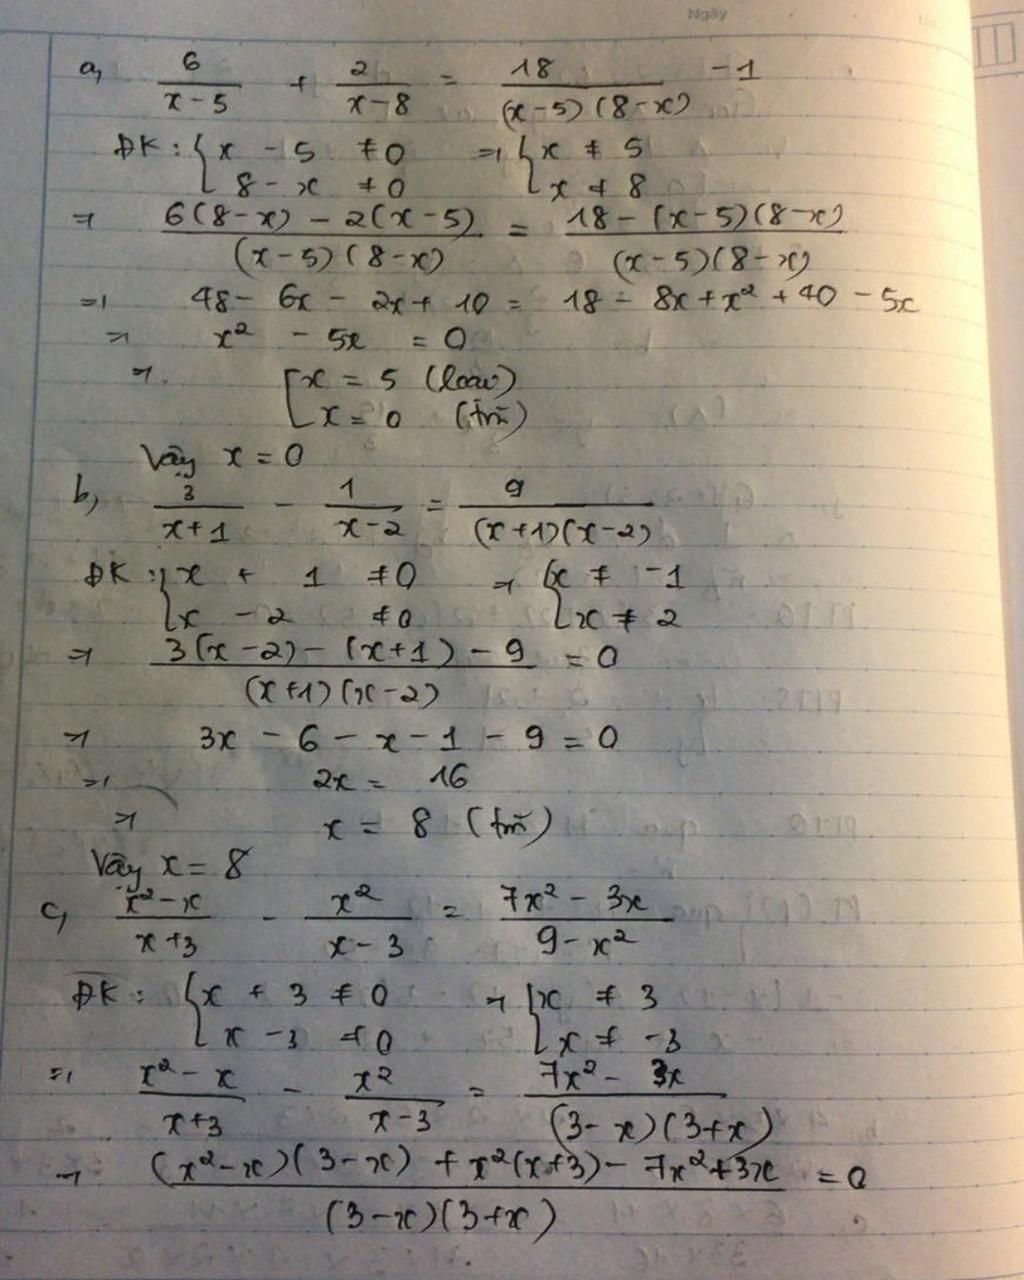 Ngày
a, 6/(x-5) + 2/(x-8) = 18/((x-5)(8-x)) - 1
ĐK: { x - 5 ≠ 0 => { x ≠ 5
8 - x ≠ 0 x ≠ 8
=> (6(8-x) - 2(x-5))/((x-5)(8-x)) = (18 - (x-5)(8-x))/((x-5)(8-x))
=> 48 - 6x - 2x + 10 = 18 - 8x + x² + 40 - 5x
=> x² - 5x = 0
=> [ x = 5 (loại)
x = 0 (tm)
Vậy x = 0
b, 3/(x+1) - 1/(x-2) = 9/((x+1)(x-2))
ĐK: { x + 1 ≠ 0 => { x ≠ -1
x - 2 ≠ 0 x ≠ 2
=> (3(x-2) - (x+1) - 9)/((x+1)(x-2)) = 0
=> 3x - 6 - x - 1 - 9 = 0
=> 2x = 16
=> x = 8 (tm)
Vậy x = 8
c, (x²-x)/(x+3) - x²/(x-3) = (7x² - 3x)/(9-x²)
ĐK: { x + 3 ≠ 0 => { x ≠ 3
x - 3 ≠ 0 x ≠ -3
=> (x²-x)/(x+3) - x²/(x-3) = (7x² - 3x)/((3-x)(3+x))
=> ((x²-x)(3-x) + x²(x+3) - 7x² + 3x)/((3-x)(3+x)) = 0